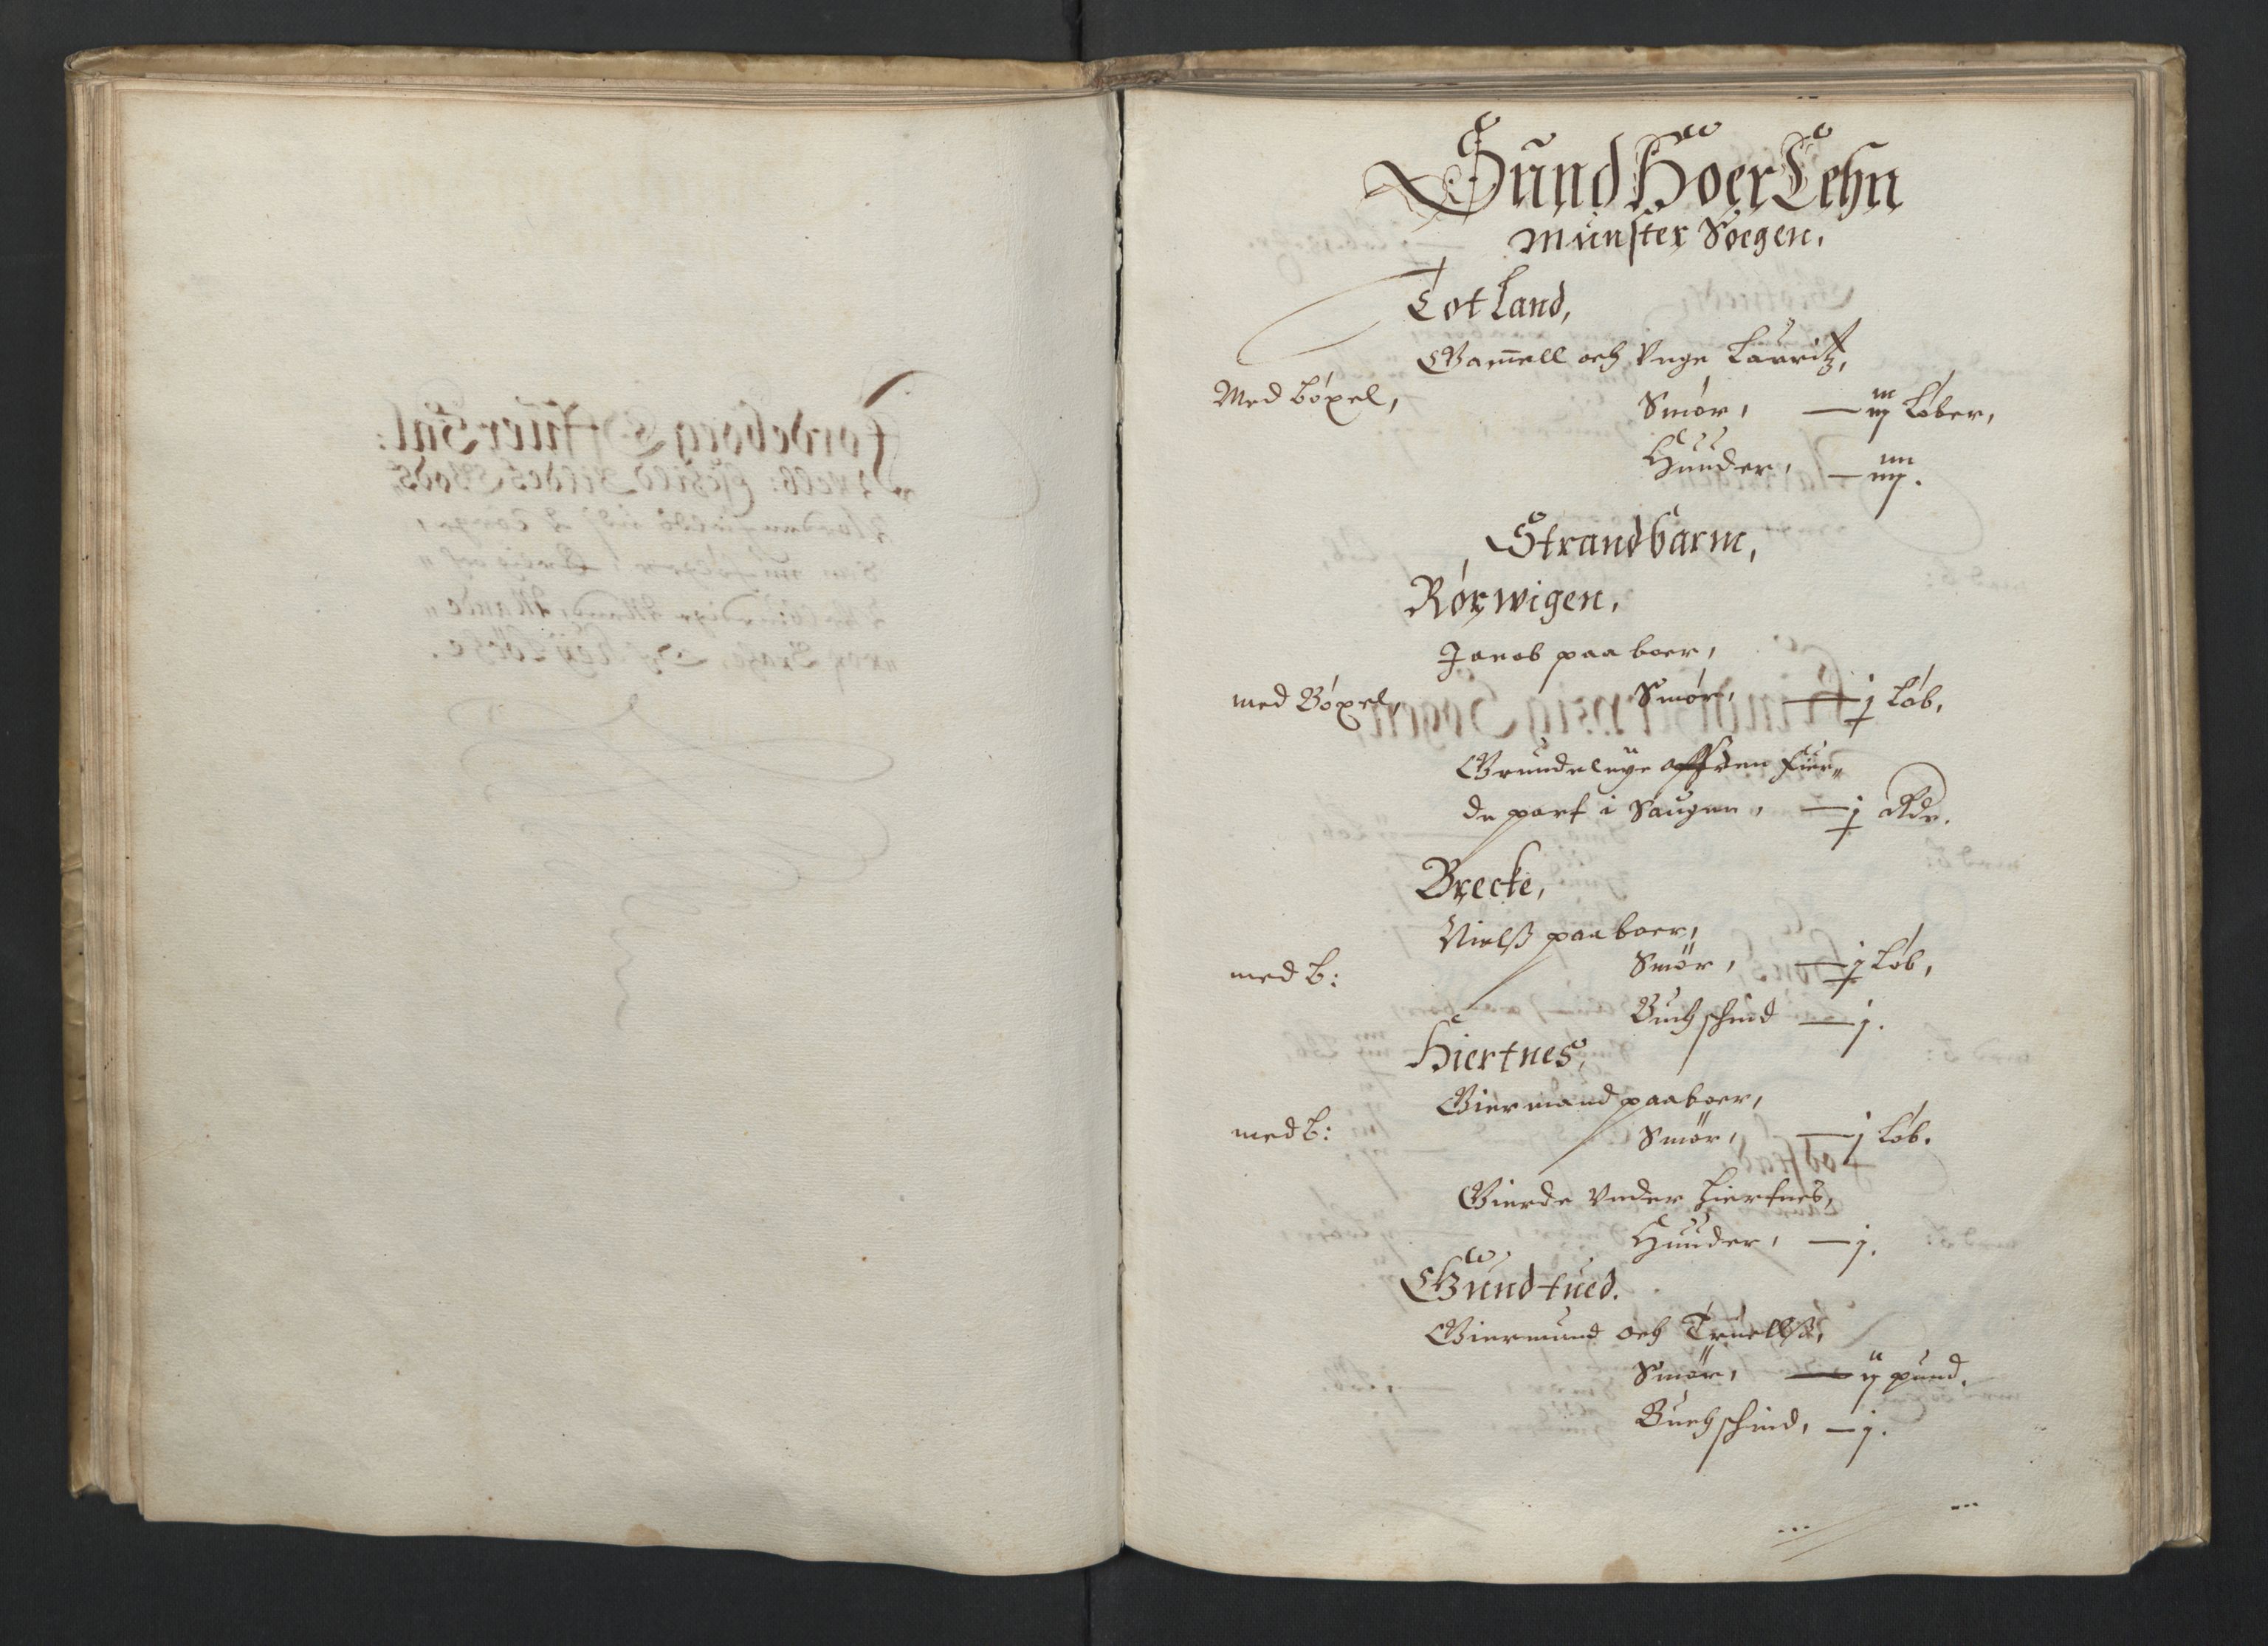 Sund Hoer Lehn
Munster Soegen.
Totland,
Gam̄ell och Unge Lauritz,
Med böxel, Smör, — iij Löber,
Huuder, — iiij.
Strandbarm,
Rörwigen,
Jacob paaboer,
med Böxel, Smör, — j Löb,
Grundeleye aff den fier„
de part i Saugen, — j Rdr.
Brecke,
Nielß paaboer,
med b: Smör, — j Löb,
Buchschind — j.
Hiertnes,
Giermand paaboer,
med b: Smör, — j Löb.
Gierde Under Hiertnes,
Huuder, — j.
Gundtued.
Giermund och Truellß,
Smör, — ij pund,
Buchschind, — j.